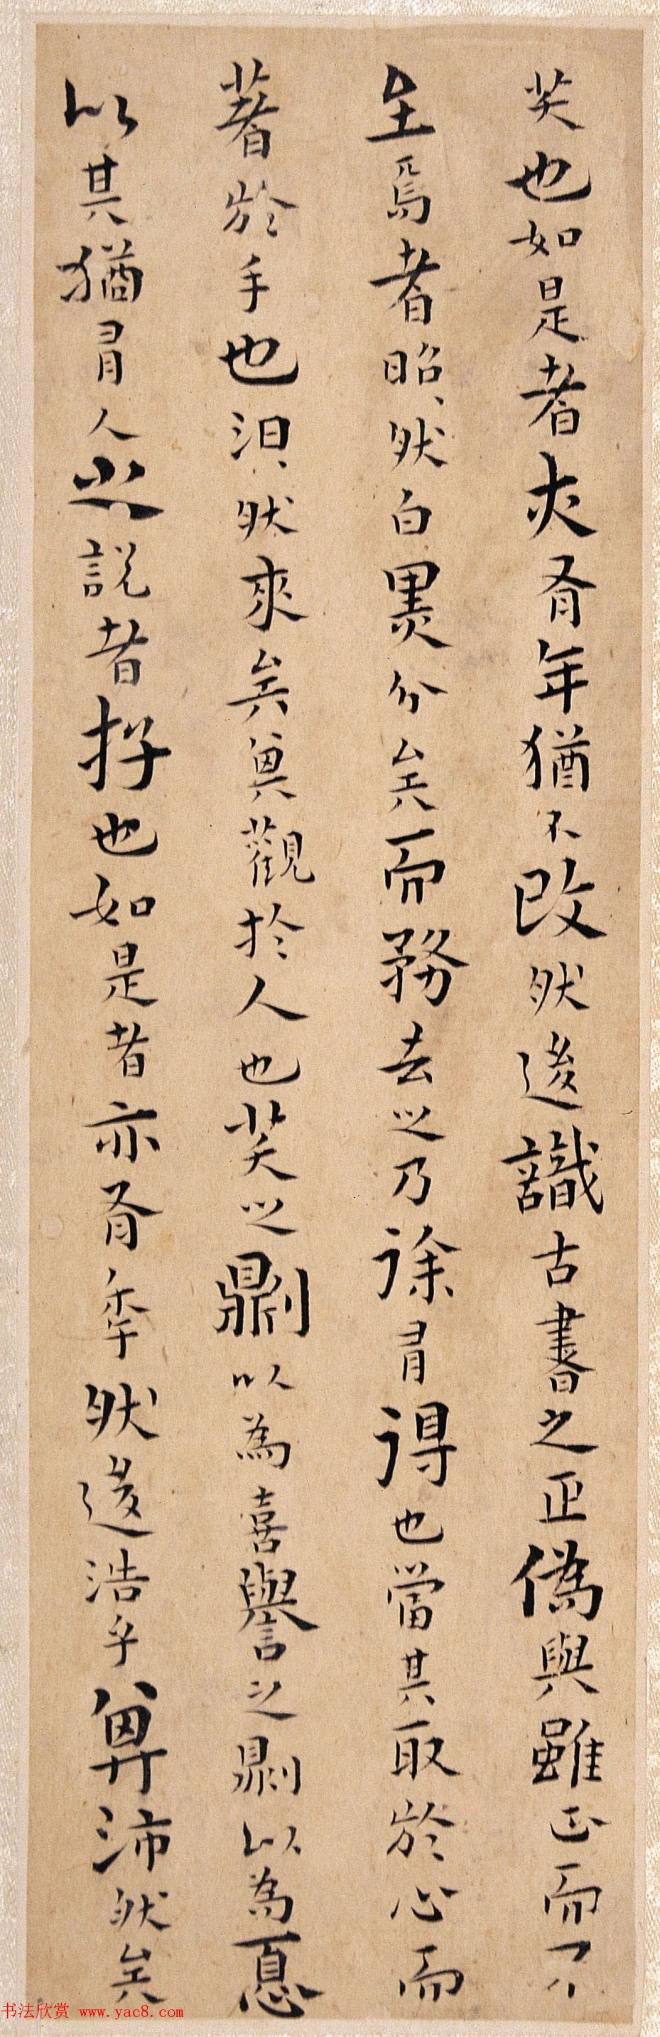 笑也如是者亦有年猶不改然後識古書之正偽與雖正而不
至焉者昭昭然白黑分矣而務去之乃徐有得也當其取於心而
著於手也汩汩然來矣其觀於人也笑之則以為喜譽之則以為憂
以其猶有人之說者存也如是者亦有年然後浩乎其沛然矣
书法欣赏 www.yac8.com